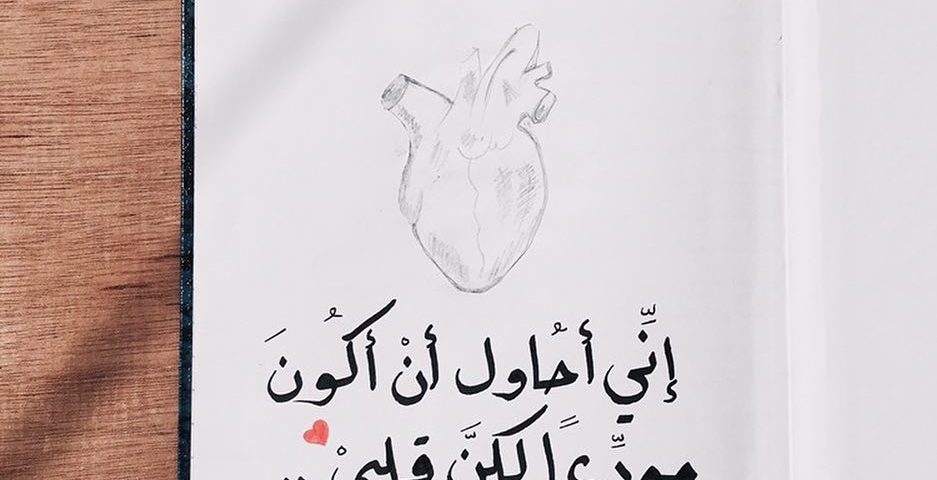 إنِّي أحُاول أنْ أكُونَ
مودِّعاً لكنَّ قلبيْ ..